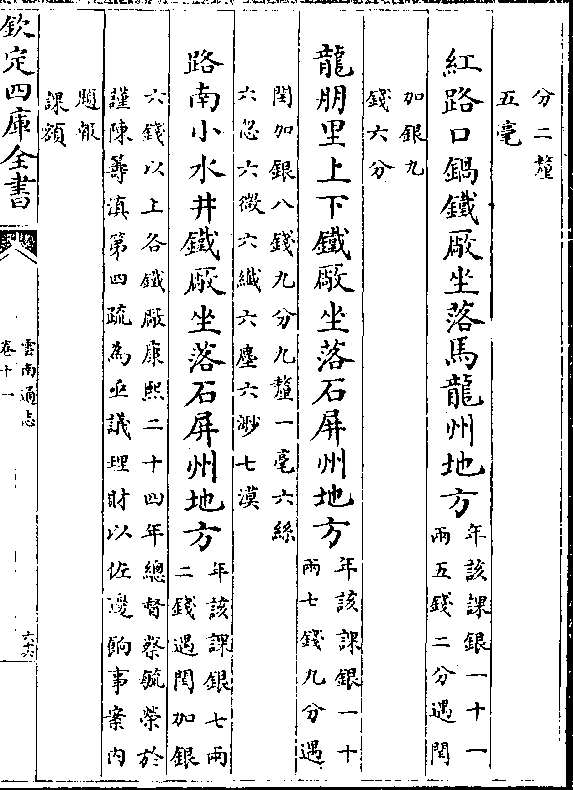 分二釐
五毫
紅路口鍋鐵厰坐落馬龍州地方
年該課銀一十一
兩五錢二分遇閏
加銀九
錢六分
龍朋里上下鐵厰坐落石屏州地方
年該課銀一十
兩七錢九分遇
閏加銀八錢九分九釐一毫六絲
六忽六微六纖六塵六渺七漠
路南小水井鐵厰坐落石屏州地方
年該課銀七兩
二錢遇閏加銀
六錢以上各鐵厰康熙二十四年總督蔡毓榮於
謹陳籌滇第四疏為亟議理財以佐邊餉事案内
題報
課額
欽定四庫全書
雲南通志
卷十一
六十六